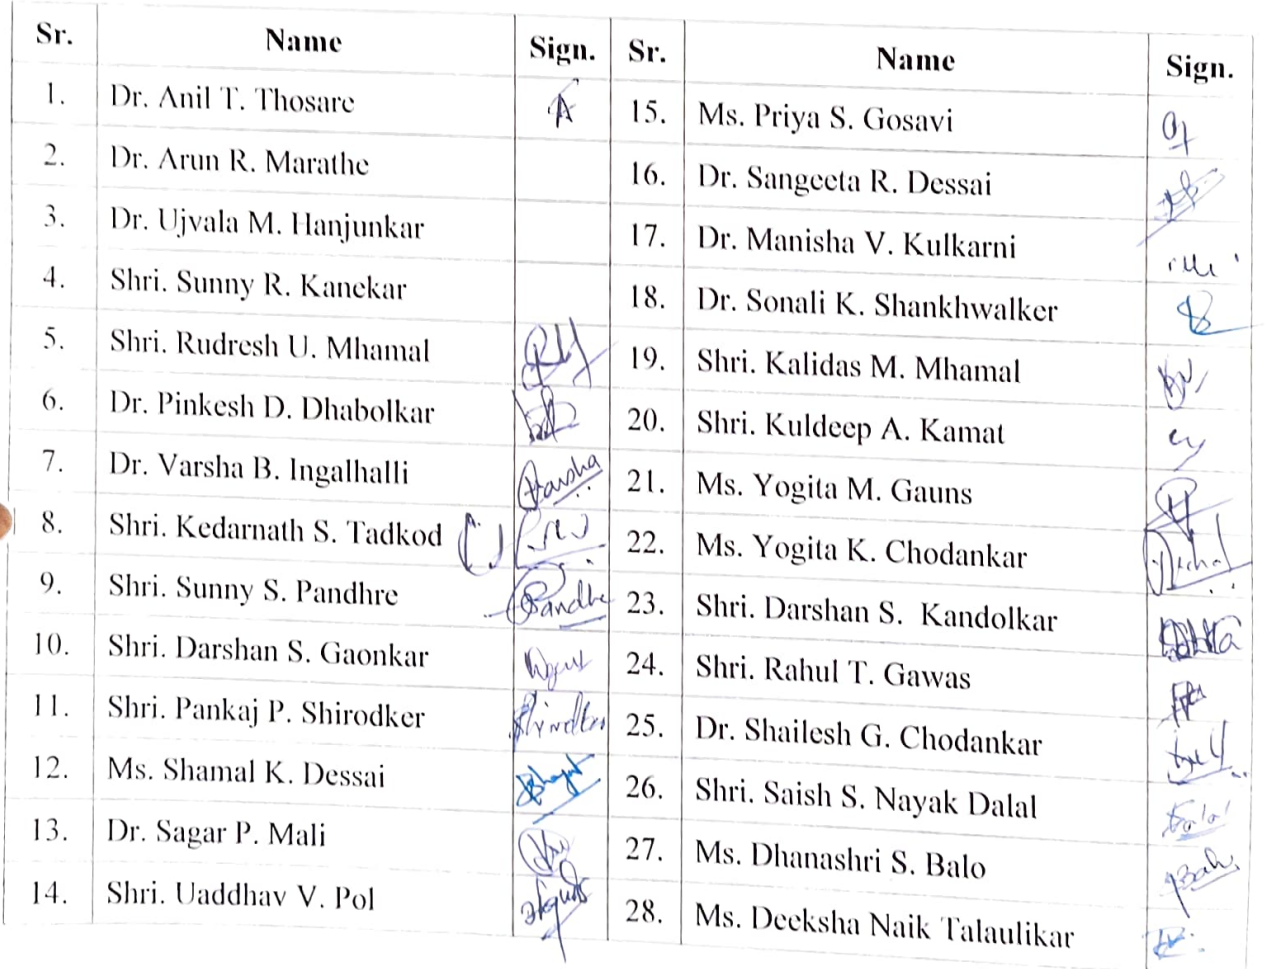 Sr. Name Sign. Sr. Name Sign.
1. Dr. Anil T. Thosare 15. Ms. Priya S. Gosavi
2. Dr. Arun R. Marathe 16. Dr. Sangeeta R. Dessai
3. Dr. Ujvala M. Hanjunkar 17. Dr. Manisha V. Kulkarni
4. Shri. Sunny R. Kanekar 18. Dr. Sonali K. Shankhwalker
5. Shri. Rudresh U. Mhamal 19. Shri. Kalidas M. Mhamal
6. Dr. Pinkesh D. Dhabolkar 20. Shri. Kuldeep A. Kamat
7. Dr. Varsha B. Ingalhalli Varsha 21. Ms. Yogita M. Gauns
8. Shri. Kedarnath S. Tadkod 22. Ms. Yogita K. Chodankar
9. Shri. Sunny S. Pandhre 23. Shri. Darshan S. Kandolkar
10. Shri. Darshan S. Gaonkar 24. Shri. Rahul T. Gawas
11. Shri. Pankaj P. Shirodker 25. Dr. Shailesh G. Chodankar
12. Ms. Shamal K. Dessai 26. Shri. Saish S. Nayak Dalal
13. Dr. Sagar P. Mali 27. Ms. Dhanashri S. Balo
14. Shri. Uaddhav V. Pol 28. Ms. Deeksha Naik Talaulikar